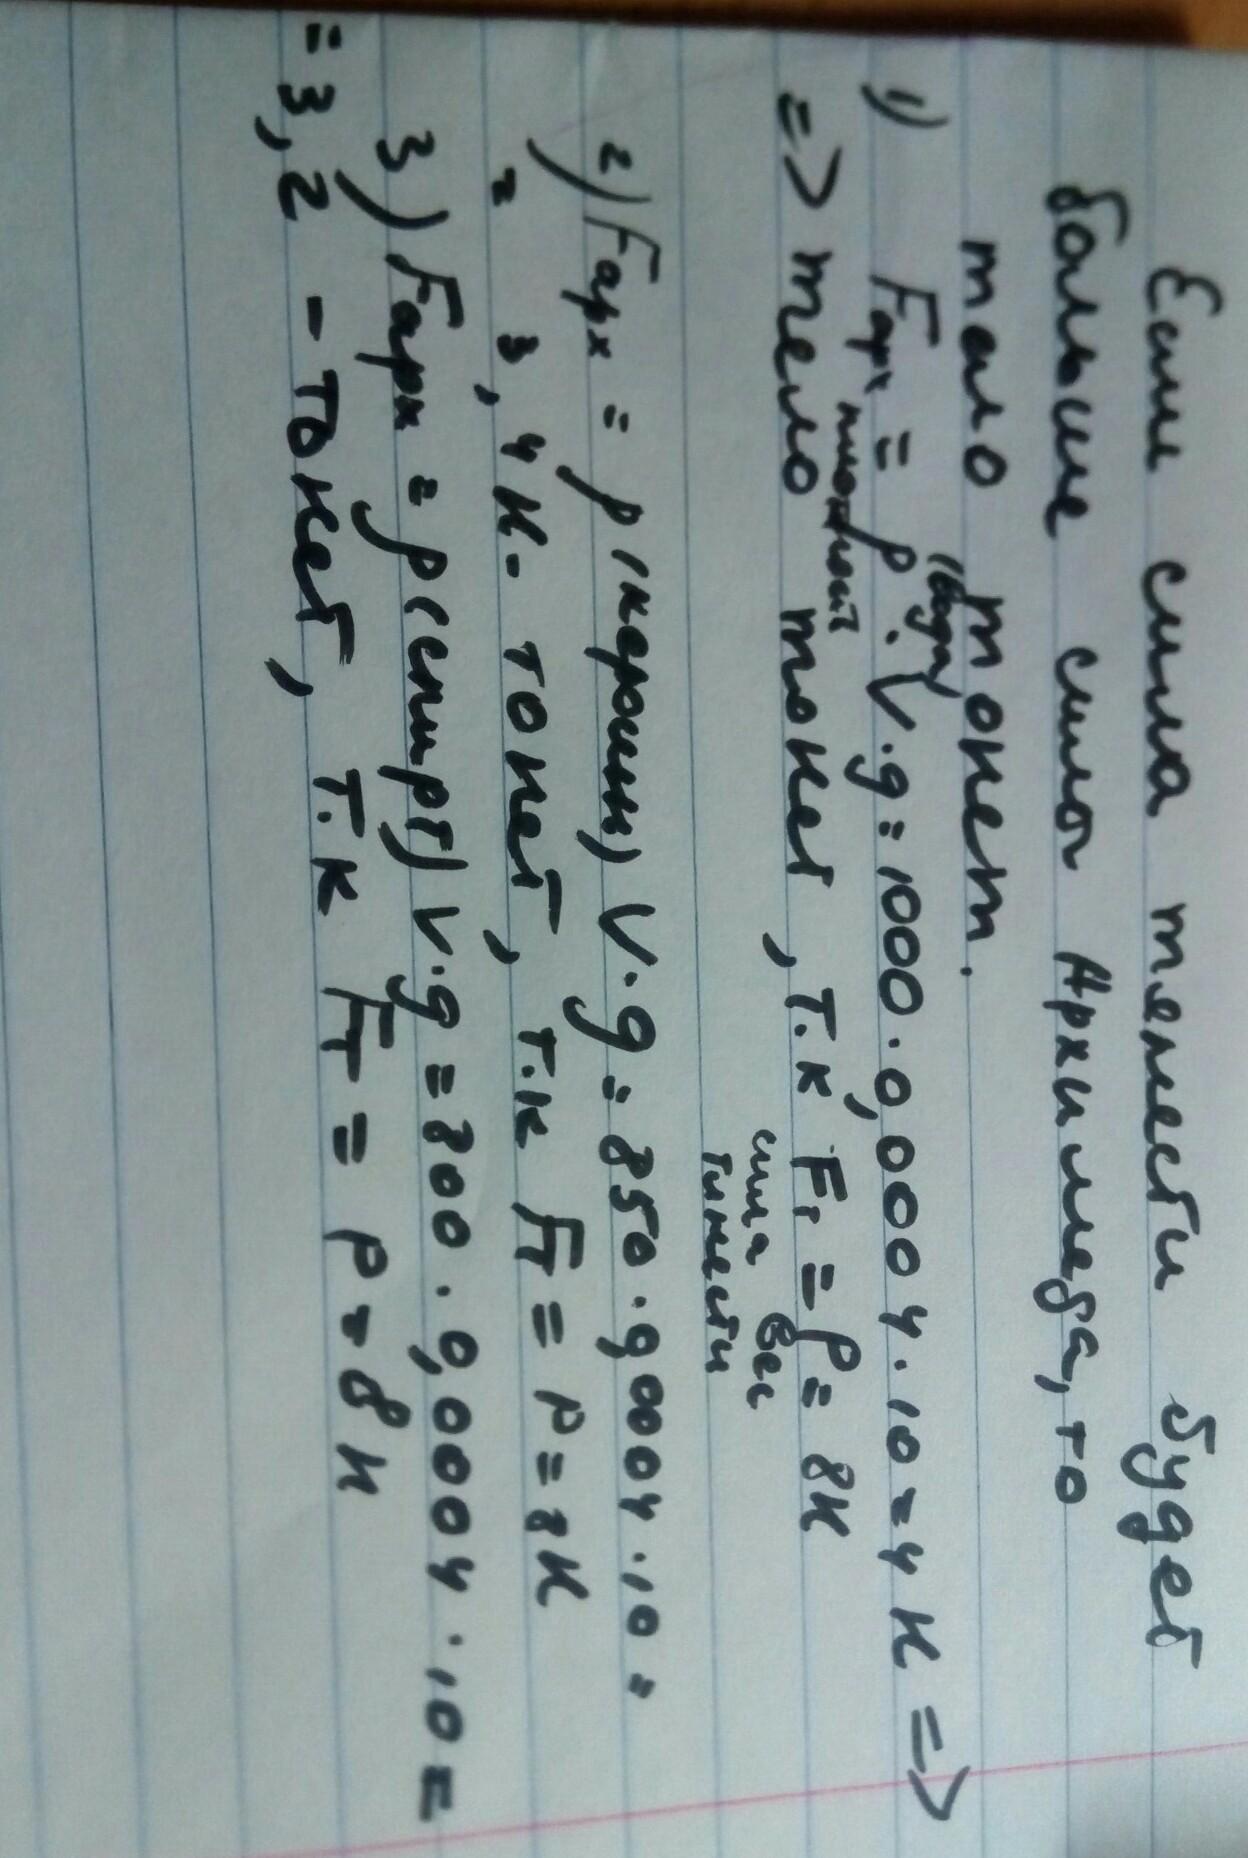 Если сила тяжести будет
больше силы Архимеда, то
тело тонет.
(вода)
1) Fарх = ρ · V · g = 1000 · 0,0004 · 10 = 4 Н =>
плотност
=> тело тонет, т.к, Fт = P = 8Н
сила вес
тяжести
2) Fарх = ρ (керосин) V · g = 850 · 0,0004 · 10 =
= 3,4 Н - тонет, т.к Fт = P = 8 Н
3) Fарх = ρ (спирт) V · g = 800 · 0,0004 · 10 =
= 3,2 - тонет, т.к Fт = P = 8 Н